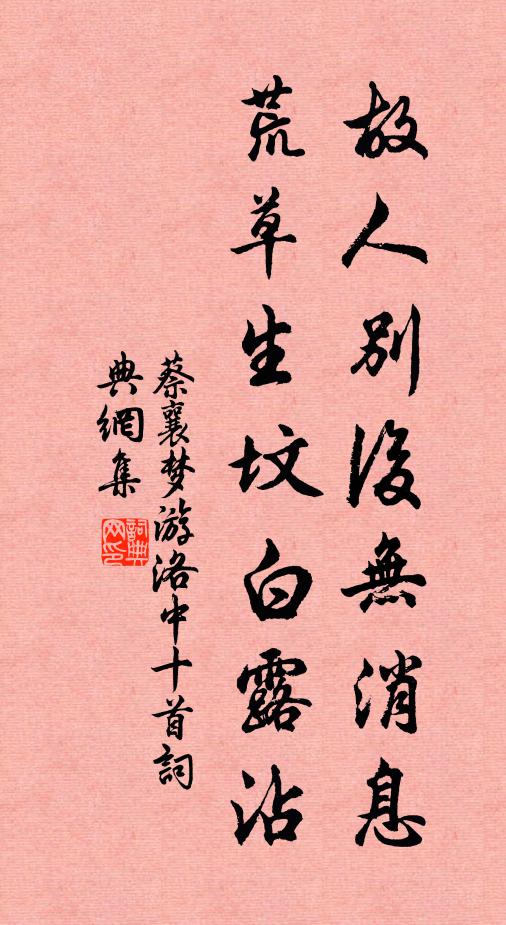 故人別後無消息
荒草生坟白露沾
蔡襄梦游洛中十首詞
典網集
詞典网印